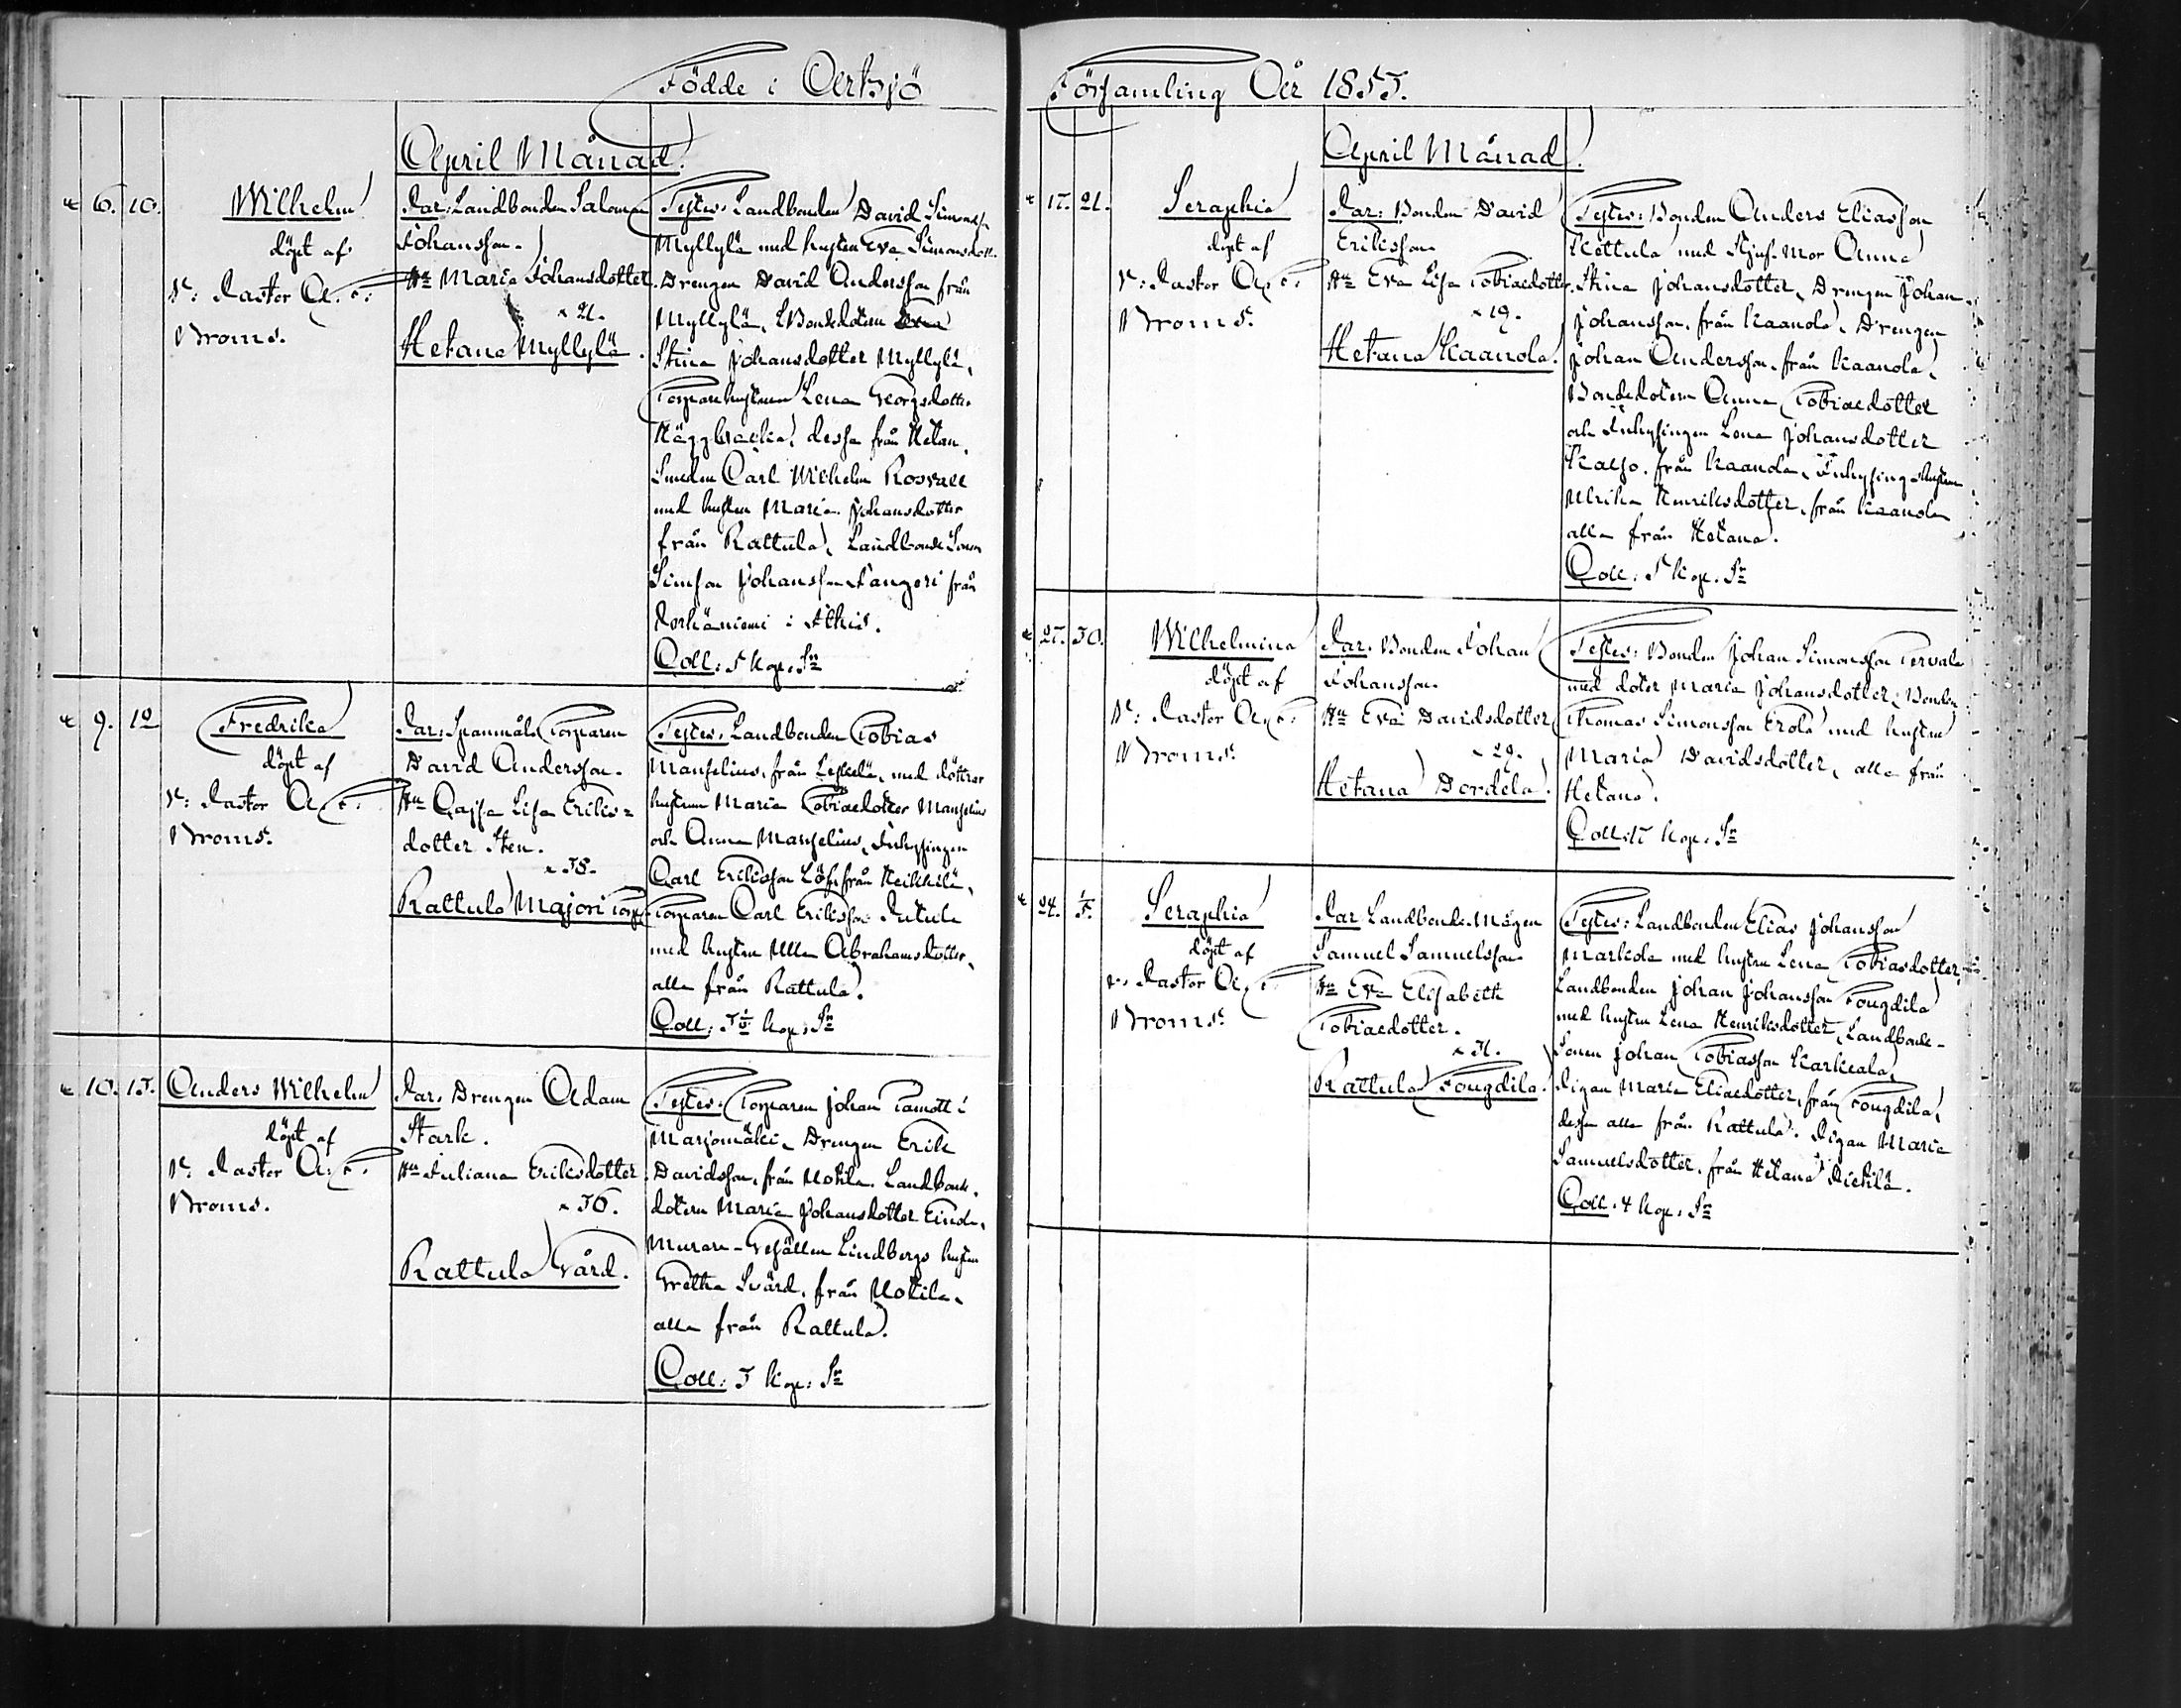 Födde i Artsjö
April Månad.
6. 10.
Wilhelm
döpt af
V: Pastor A. F.
Broms.
Par: Landbonden Salomon
Johansson.
Hu Maria Johansdotter
21.
Hetana Myllylä.
Testes: Landbonden David Simonss.
Myllylä med hustru Eva Simonsdott.
Drengen David Andersson från
Myllylä, Bondedotern
Stina Johansdotter Myllylä,
Torparehustrun Lena Georgsdotter
Häggbacka, dessa från Hetan.
Smeden Carl Wilhelm Rosvall
med hustru Maria Johansdotter
från Rattula, Landbonde Sonen
Simson Johansson från
i Ithis.
Coll: 5 Kop: Sr
9. 12
Fredrika
döpt af
V: Pastor A. F.
Broms.
Par: Spanmåls Torparen
David Andersson.
Hu Cajsa Lisa Eriks=
dotter Sten.
38.
Rattula Majori Torp
Testes: Landbonden Tobias
Manselius, från Leskelä, med döttrar
hustrun Maria Tobiaedotter Manselius
och Anna Manselius, Inhysingen
Carl Eriksson Löf, från Heikkilä,
Torparen Carl Eriksson
med hustru Ulla Abrahamsdotter,
alla från Rattula.
Coll: Kop: Sr
10. 13.
Anders Wilhelm
döpt af
V: Pastor A. F.
Broms.
Par: Drengen Adam
Stark.
Hu Juliana Eriksdotter
36.
Rattula Gård.
Testes: Torparen Johan Tamott i
Marjomäki, Drengen Erik
Davidsson, från Uotila, Landbonde-
dotern Maria Johansdotter
Murare-Gesällen Lindbergs hustru
Gretha Svärd, från Uotila,
alla från Rattula.
Coll: 3 Kop: Sr
Församling År 1853.
April Månad.
17. 21.
Seraphia
döpt af
V: Pastor A. F.
Broms.
Par: Bonden David
Eriksson.
Hu Eva Lisa Tobiaedotter.
19.
Hetana Kaanola.
Testes: Bonden Anders Eliasson
Kottula med Stjuf-Mor Anna
Stina Johansdotter, Drengen Johan
Johansson, från Kaanola, Drengen
Johan Andersson, från Kaanola,
Bondedotern Anna Tobiaedotter
och Inhysingen Lena Johansdotter
från Kaanola, Inhysing shustrun
Ulrika Henriksdotter, från Kaanola
alla från Hetana.
Coll: 5 Kop: Sr
27. 30.
Wilhelmina
döpt af
V: Pastor A. F.
Broms.
Par: Bonden Johan
Johansson.
Hu Eva Davidsdotter
29.
Hetana Dordela.
Testes: Bonden Johan Simonsson Tervala
med doter Maria Johansdotter, Bonden
Thomas Simonsson Erola med hustru
Maria Davidsdotter, alla från
Hetana.
Coll: 17 Kop: Sr
24.
Seraphia
döpt af
V: Pastor A. F.
Broms.
Par: Landbonde-Mågen
Samuel Samuelsson
Hu Eva Elisabeth
Tobiaedotter.
31.
Rattula Fougdila.
Testes: Landbonden Elias Johansson
Markola med hustru Lena Tobiasdotter,
Landbonden Johan Johansson Fougdila
med hustru Lena Henriksdotter, Landbonde-
Sonen Johan Tobiasson Karkeala,
Pigan Maria Eliaedotter, från Fougdila,
dessa alla från Rattula. Pigan Maria
Samuelsdotter, från Hetana
Coll: 4 Kop: Sr